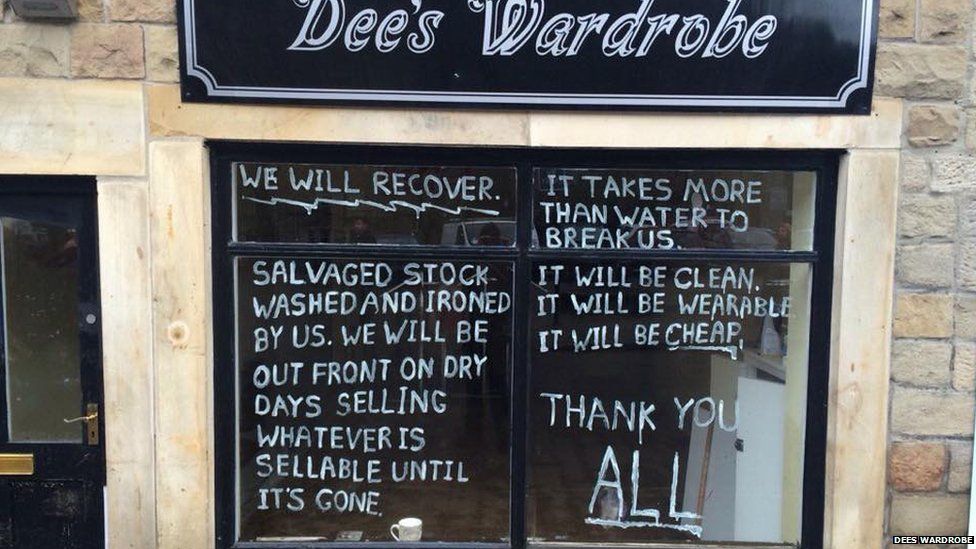 Dee's Wardrobe
WE WILL RECOVER.
IT TAKES MORE
THAN WATER TO
BREAK US.
SALVAGED STOCK
WASHED AND IRONED
BY US. WE WILL BE
OUT FRONT ON DRY
DAYS SELLING
WHATEVER IS
SELLABLE UNTIL
IT'S GONE.
IT WILL BE CLEAN.
IT WILL BE WEARABLE
IT WILL BE CHEAP.
THANK YOU
ALL
DEES WARDROBE